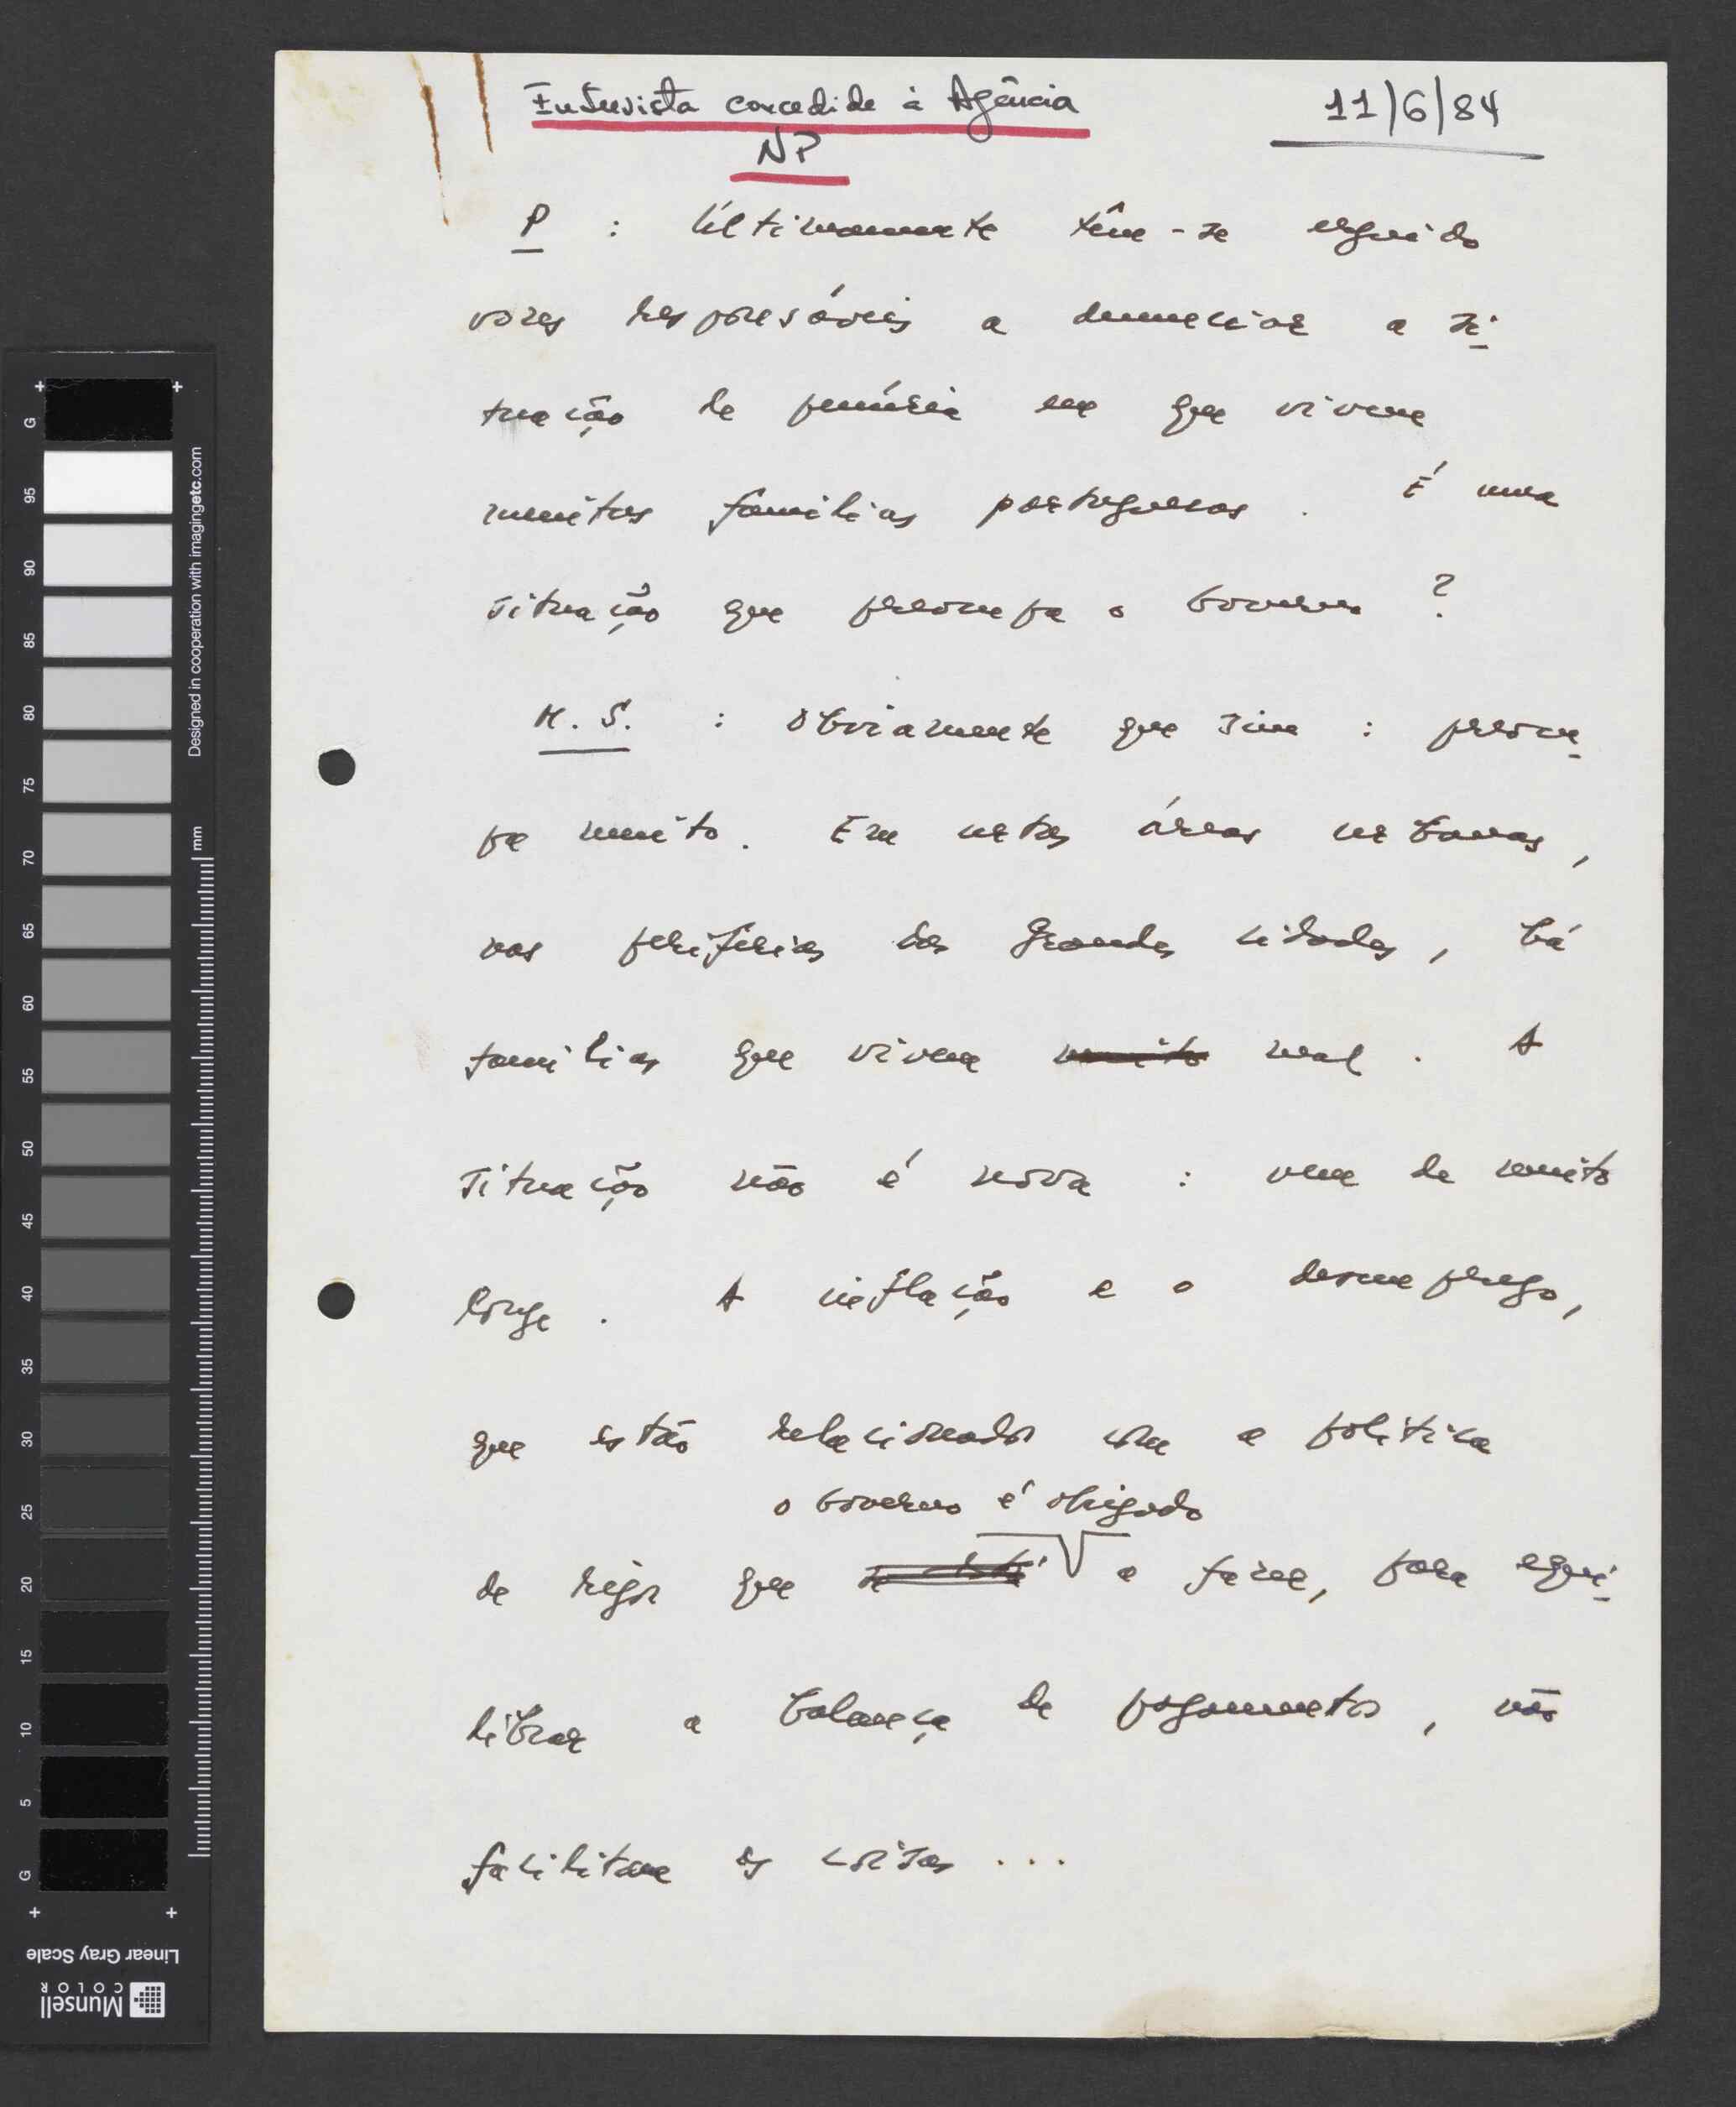 Entrevista concedida à Agência
NP
11/6/84
P : Últimamente têm-se erguido
vozes responsáveis a denunciar a si
tuação de penúria em que vivem
muitas famílias portuguesas. É uma
situação que preocupa o Governo ?
M. S. : Obviamente que sim : preocu
pa muito. Em certas áreas urbanas,
nas periferias das grandes cidades, há
famílias que vivem muito mal. A
situação não é nova : vem de muito
longe. A inflação e o desemprego,
que estão relacionados com a política
o Governo é obrigado
de rigor que se está a fazer, para equi
librar a balança de pagamentos, não
facilitam as coisas ...
G 95 90 85 80 75 70 65 60 55 50 45 40 35 30 25 20 15 10 5 G
Designed in cooperation with imagingetc.com
mm
Linear Gray Scale
Munsell
COLOR